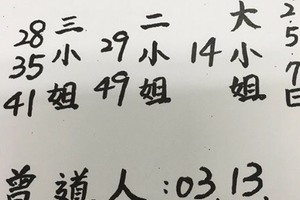 257日
大小姐
14
二小姐
29
49
三小姐
28
35
41
曾道人:03 13